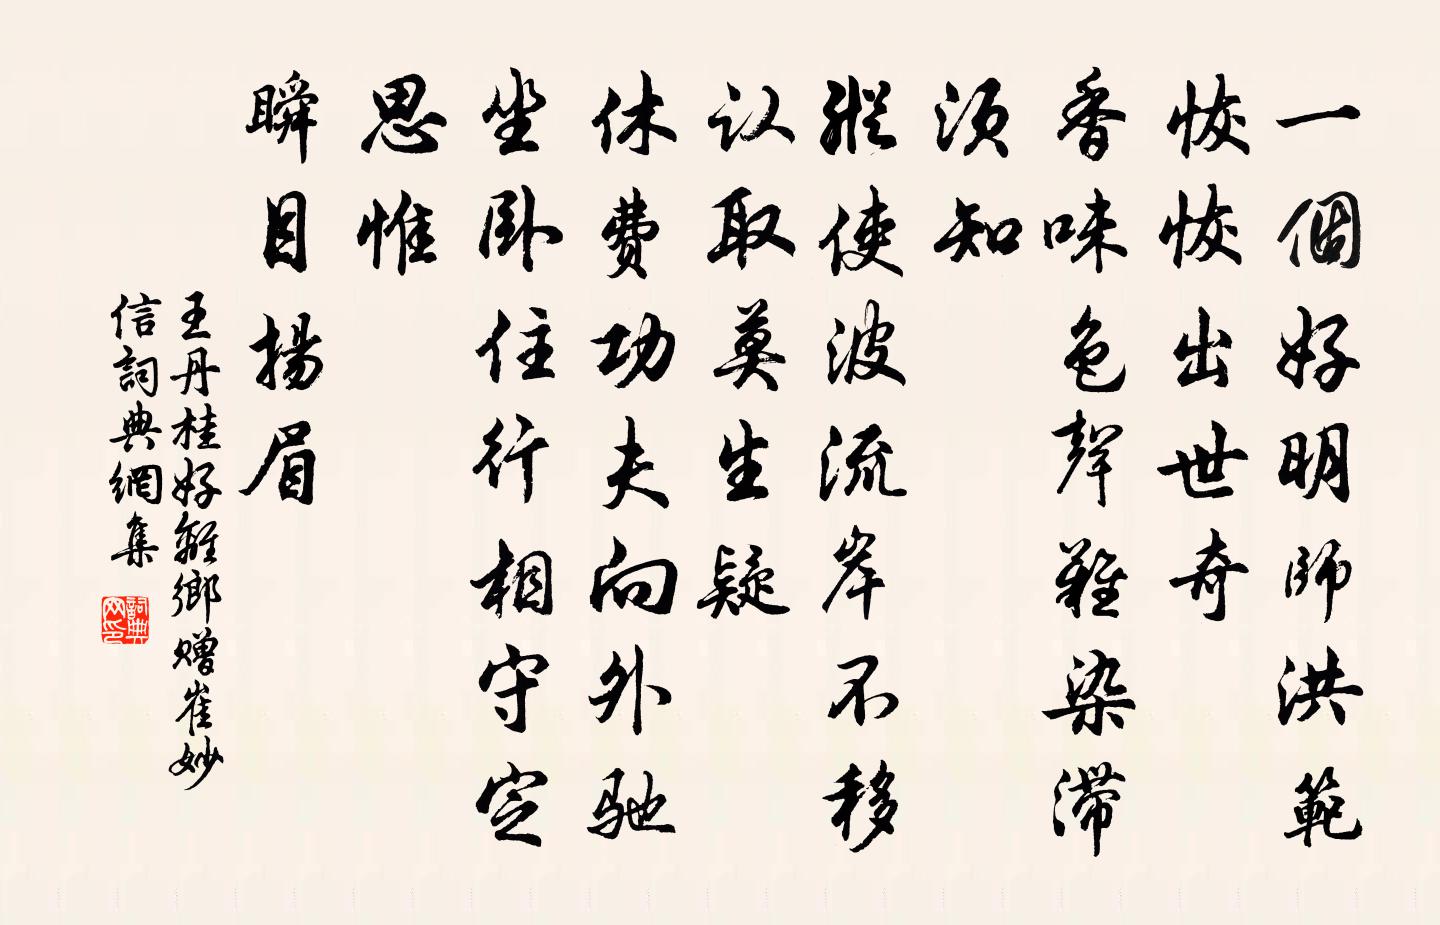 一個好明師洪範
恢恢出世奇
香味色聲難染滯
須知
縱使波流岸不移
认取莫生疑
休費功夫向外馳
坐卧住行相守定
思惟
瞬目揚眉
王丹桂好離鄉贈崔妙
信詞典網集
詞典网印